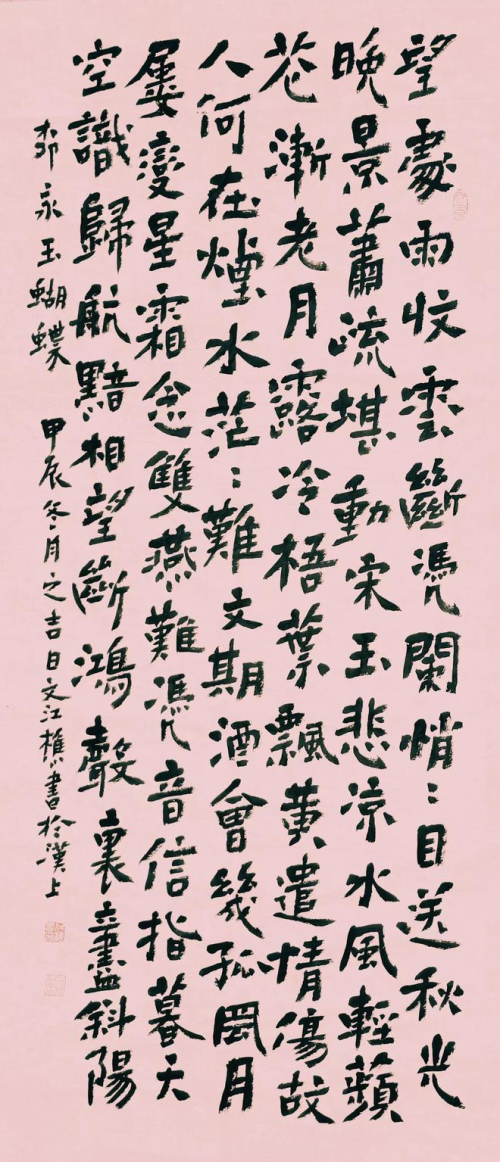 望處雨收雲斷凴闌悄〻目送秋光
晚景蕭疏堪動宋玉悲涼水風輕蘋
花漸老月露冷梧葉飄黃遣情傷故
人何在煙水茫〻難文期酒會幾孤風月
屢變星霜念雙燕難凴音信指暮天
空識歸航黯相望斷鴻聲裏立盡斜陽
柳永玉蝴蝶 甲辰冬月之吉日文江樵書於漢上